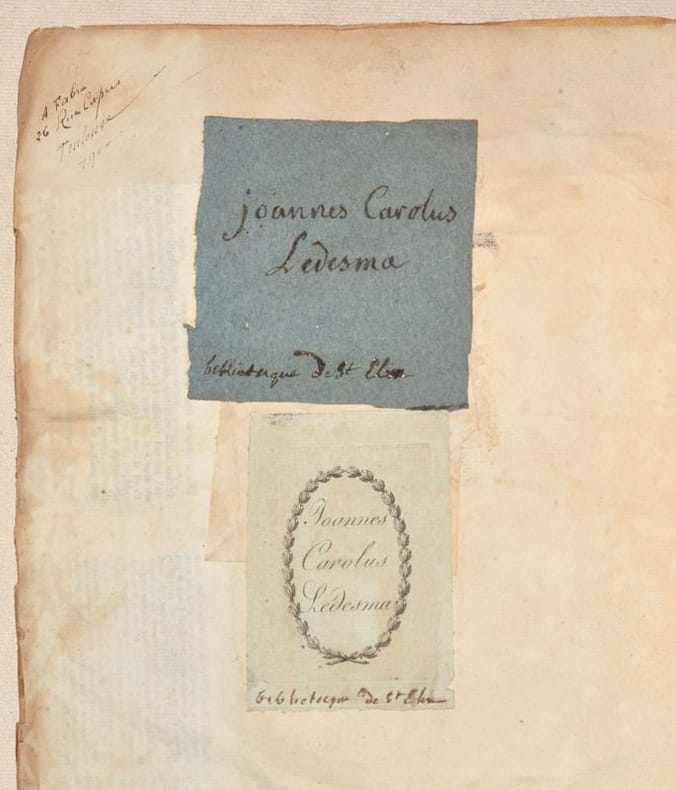 A Fabre
26 Rue Capus
Toulouse
joannes Carolus
Ledesma
bebliotecque De St
Joannes
Carolus
Ledesma
bebliotecque de St